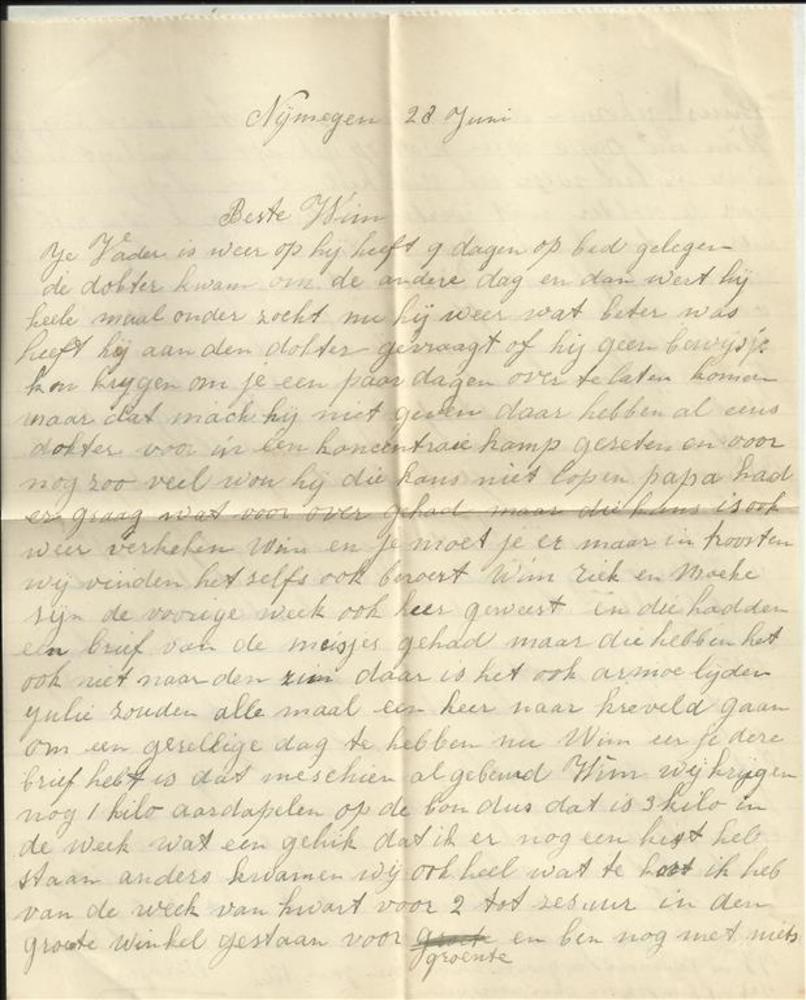 Nÿmegen 28 Juni
Beste Wim
Ye Vader is weer op hy heeft 9 dagen op bed gelegen
de dokter kwam om de andere dag en dan wert hÿ
heele maal onder zocht nu hÿ weer wat beter was
heeft hÿ aan den dokter gevraagt of hÿ geen bewysje
kon krygen om je een paar dagen over te laten komen
maar dat mach hÿ niet geven daar hebben al eens
dokter voor in een koncentraie kamp gezeten en voor
nog zoo veel wou hÿ die kans niet lopen papa had
er graag wat voor over gehad maar die kans is ook
weer verkeken Wim en je moet je er maar in troosten
wÿ vinden het selfs ook beroert Wim Riek en Moeke
sÿn de voorige week ook heer geweest en die hadden
een brief van de meisjes gehad maar die hebben het
ook niet naar den zin daar is het ook armoe lÿden
yulie zouden alle maal een keer naar kreveld gaan
om een gezellige dag te hebben nu Wim eer je dere
brief hebt is dat meschien al gebeurd Wim wÿ krÿgen
nog 1 kilo aardapelen op de bon dus dat is 3 kilo in
de week wat een geluk dat ik er nog een kist heb
staan anders kwamen wÿ ook heel wat te kort ik heb
van de week van kwart voor 2 tot zes uur in den
groote winkel gestaan voor groet en ben nog met niets
groente